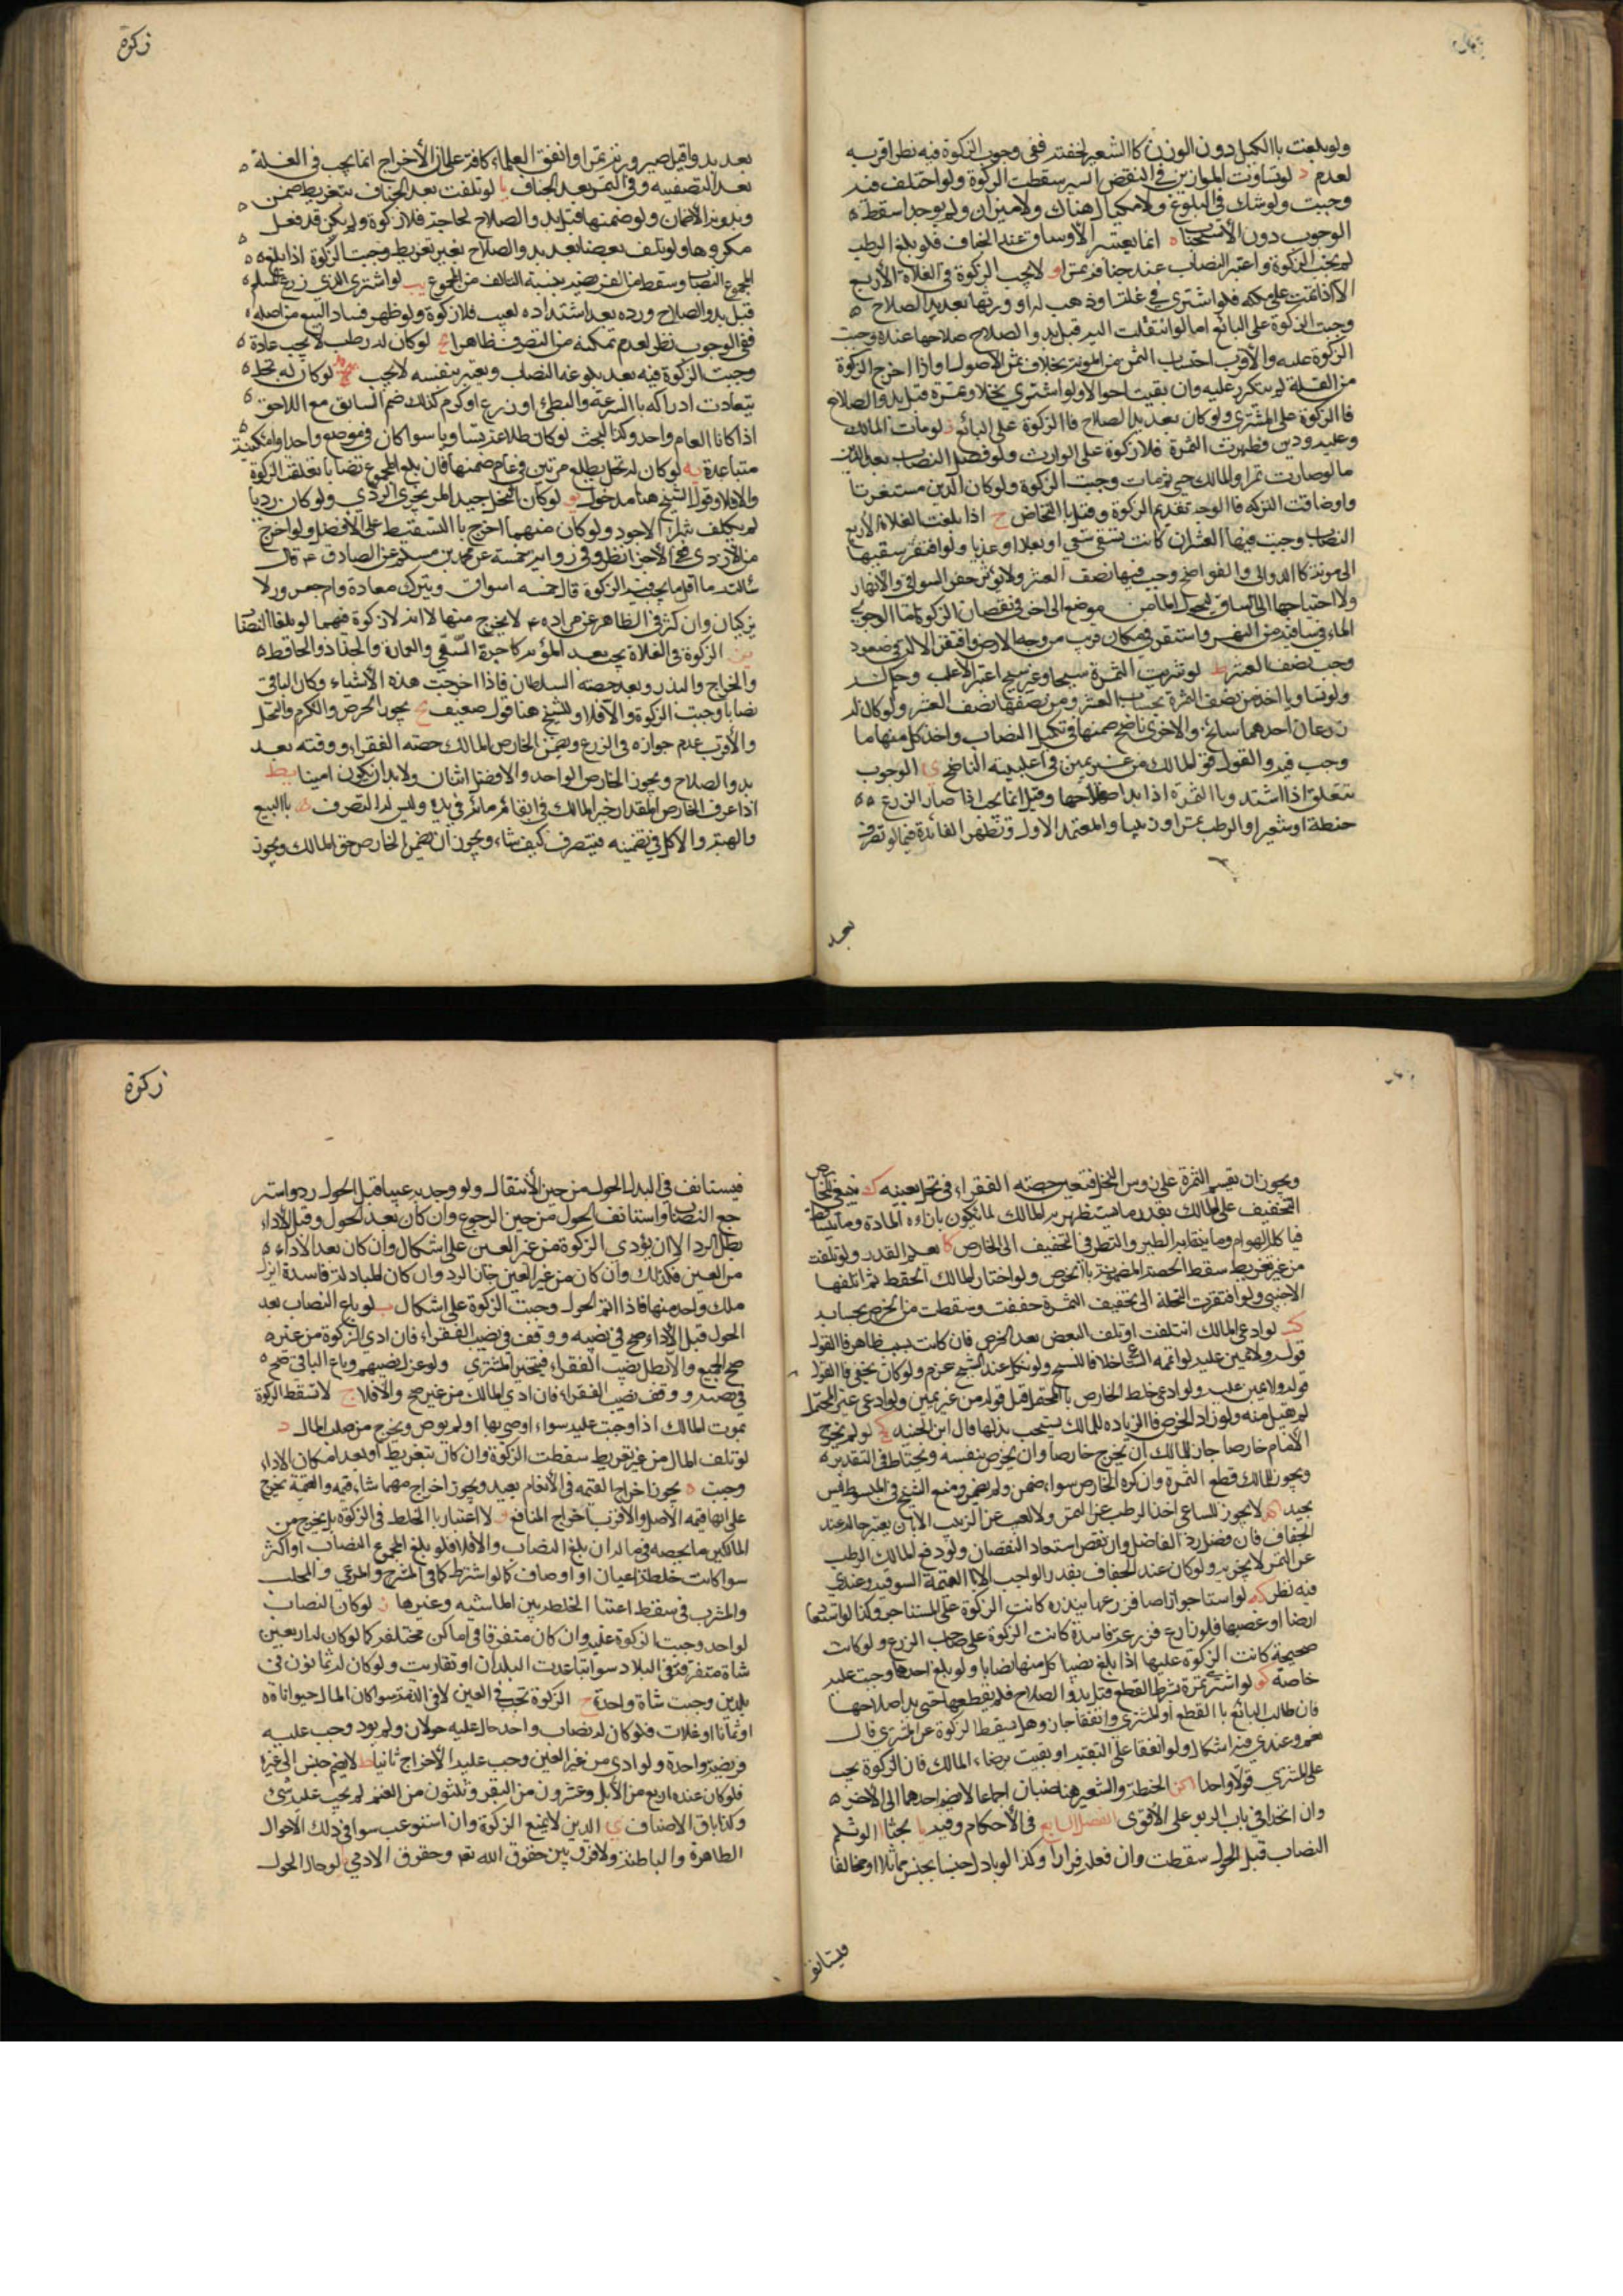 ولو بلغت باالكيل دون الوزن كاالشعير لخفته ففى وجوب الزكوة فيه نظر اقربه
لعدم د لو تفاوتت الموازين فى النقض اليسير سقطت الزكوة ولو اختلف فيه
وجبت ولو شك فى البلوغ ولا مكيال هناك ولا ميزان ولم يوجد اسقط
الوجوب دون الأستحباب ه انما يعتبر الأوساق عند الجفاف فلو بلغ الرطب
لم يجب الزكوة واعتبر النصاب عند جفافه تمرا و لا يجب الزكوة فى الغلاة الأربع
الا اذا نمت على ملكه فلو اشترى غلتا او وهب له او ورثها بعد بدو الصلاح
وجبت الزكوة على البائع اما لو انتقلت اليه قبل بدو الصلاح صلاحها عنده وجبت
الزكوة عليه والأقرب احتساب الثمن من المونة بخلاف ثمن الأصول واذا اخرج الزكوة
من الغلة لم يتكرر عليه وان بقيت احوالا ولو اشترى نخلا وثمرة قبل بدو الصلاح
فاالزكوة على المشترى ولو كان بعد بدو الصلاح فاالزكوة على البائع ز لو مات المالك
وعليه دين فظهرت الثمرة فلا زكوة على الوارث ولو فضل النصاب بعد الدين
ما لو صارت تمرا والمالك حى ثم مات وجبت الزكوة ولو كان الدين مستغرقا
ولو ضاقت التركه فاالوجه تقديم الزكوة وقيل باالتحاص ح اذا بلغت الغلاة الأربع
النصاب وجب فيها العشر ان كانت تسقى سقى او بعلا او عذيا ولو افتقر سقيها
الى مونة كاالدوالى والنواضح وجب فيها نصف العشر ولا يؤثر حفر السواقى والأنهار
ولا احتياجها الى ساق يحول الماء من موضع الى اخر فى نقصان الزكوة اما لو جرى
الماء فى ساقيه من النهر واستقر فى مكان قريب من وجه الارض وافتقر الا الة فى صعوده
وجب نصف العشر ط لو شربت الثمرة سيحا وغير سيح اعتبر الأغلب وحكم له
ولو تساويا اخذ من نصف الثمرة بحساب العشر ومن نصفها نصف العشر ولو كان له
زرعان احدهما سائح والاخرى ناضح ضمنها فى تكميل النصاب واخذ كل منهما ما
وجب فيه والقول قول المالك من غير يمين فى اغلبيته الناضح ى الوجوب
يتعلق اذا اشتد وباالثمرة اذا بدا صلاحها وقيل انما يجب اذا صار الزرع
حنطة او شعيرا والرطب تمرا او زبيبا والمعتمد الاول وتظهر الفائدة فيما لو تصرف
بعد
زكوة
بعد بدو وقبل صيرورته تمرا واتفق العلماء كافة على ان الأخراج انما يجب فى الغلة
بعد التصفيه وفى التمر بعد الجفاف يا لو تلفت بعد الجفاف بتفريط ضمن
وبدونه الأضمان ولو ضمنها قبل بدو الصلاح لحاجة فلا زكوة ولم يكن قد فعل
مكروها ولو تلف بعضها بعد بدو الصلاح بغير تفريط وجبت الزكوة اذا بلغ
المجموع النصاب وسقط من الفريضه بنسبة التالف من المجموع يب لو اشترى الذى زرع المسلم
قبل بدو الصلاح ورده بعد اشتداده لعيب فلا زكوة ولو ظهر فساد البيع من اصله
ففى الوجوب نظر لعدم تمكنه من التصرف ظاهرا يج لو كان له رطب لا يجب عادة
وجبت الزكوة فيه بعد بلوغه النصاب ويعتبر بنفسه لا يجب لو كان له نخل
يتعادت ادراكه باالسرعة والبطئ او زرع او كرم كذلك ضم السابق مع اللاحق
اذا كانا العام واحد وكذا البحث لو كان طلاعه متساويا سوا كان فى موضع واحد او امكنة
متباعدة يه لو كان له نخل يطلع مرتين فى عام ضمنها فان بلغ المجموع نصابا تعلقت الزكوة
والا فلا وقول الشيخ هنا مدخول يو لو كان النخل جيد المر يجزى الردى ولو كان رديا
لم يكلف شراء الاجود ولو كان منهما اخرج باالتسقيط على الافضل ولو اخرج
من الأردى فى الأجزاء نظر وفى رواية حسنة عن محمد بن مسلم عن الصادق ع قال
سألته ما اقل ما يجب فيه الزكوة قال خمسة اسواق ويترك معافارة وام جعرور لا
يزكيان وان كثر فى الظاهر عن مراده ع لا يخرج منها لا انه لا زكوة فيهما لو بلغا النصاب
يز الزكوة فى الغلاة يجب بعد المؤنه كاجرة السقى والعمارة والجذاذ والحافظ
والخراج والبذر وبعد حصه السلطان فاذا اخرجت هذه الأشياء وكان الباقى
نصابا وجبت الزكوة والا فلا وللشيخ هنا قول ضعيف يح يجوز الخرص والكرم والنخل
والأقرب عدم جوازه فى الزرع ويضمن الخارص المالك حصه الفقراء ووقته بعد
بدو الصلاح ويجوز الخارص الواحد والافضل اثنان ولا بد ان يكون امينا يط
اذا عرف الخارص المقدار خير المالك فى ابقاء ثمر ماله فى يده وليس له التصرف باالبيع
والهبة والاكل فى تضمينه فيتصرف كيف شاء ويجوز ان يضمن الخارص حق المالك ويجوز
ويجوز ان يقسم الثمرة على روس النخل فتعين حصه الفقراء فى نخل بعينه ك ينبغى للخارص
التخفيف على المالك بقدر ما يستظهر به المالك لما يكون بازاء المادة وما يتساقط
فياكله الهوام وما ينتقله الطير والنظر فى التخفيف الى الخارص كا بعد القدر ولو تلفت
من غير تفريط سقط الحصه المضمونة باالخرص ولو اختار المالك الحفظ ثم اتلفها
الاجنبى ولو افتقرت النخلة الى تخفيف الثمرة خففت وسقطت من الخرص بحسابه
كب لو ادعى المالك ان تلفت او تلف البعض بعد الخرص فان كانت بسبب ظاهر فاالقول
قوله ولا يمين عليه لو اتهمه الساعى خلافا للشيخ ولو نكل عند الشيخ غرم ولو كان يخفى فاالقول
قوله ولا يمين عليه ولو ادعى غلط الخارص باالمحتمل قبل قوله من غير يمين ولو ادعى غير المحتمل
لم يقبل منه ولو زاد الخرص فاالزياده للمالك يستحب بذلها قال ابن الجنيد كج لو لم يخرج
الأمام خارصا جاز للمالك ان يخرج خارصا وان يخرص بنفسه ويحتاط فى التقدير
ويجوز للمالك قطع الثمرة وان كره الخارص سواء ضمن ولم يضمن ومنع الشيخ فى المبسوط ليس
بجيد كد لا يجوز للساعى اخذ الرطب عن التمر ولا العنب عن الزبيب الا ان يعتبر حاله عند
الجفاف فان فضل رد الفاضل وان نقص استعاد النقصان ولو دفع المالك الرطب
عن التمر لا يجزيه ولو كان عند الجفاف بقدر الواجب الا باالقيمة السوقيه وعندى
فيه نظر كه لو استاجر ارضا فزرعها ببذره كانت الزكوة على المستاجر وكذا لو استعار
ارضا او غصبها فلو زارع فزرعه فاسدة كانت الزكوة على صاحب الزرع ولو كانت
صحيحة كانت الزكوة عليها اذا بلغ نصيب كل منها نصابا ولو بلغ احدهما وجبت عليه
خاصة كو لو اشترى ثمرة بشرط القطع قبل بدو الصلاح فلم يقطعها حتى بدا صلاحها
فان طالب البائع باالقطع او المشترى واتفقا جاز وهل يسقط الزكوة عن المشترى قال
نعم وعندى فيه اشكال ولو اتفقا على التبقيه او بقيت برضاء المالك فان الزكوة يجب
على المشترى قولا واحدا كز الحنطة والشعير هنا جنسان اجماعا لا يضم احدهما الى الأخر
وان اتحدا فى باب الربو على الأقوى الفصل السابع فى الأحكام وفيه يا بحثا ا لو ثلم
النصاب قبل الحول سقطت وان فعله فرارا وكذا لو بادل جنسا بجنس مماثلا او مخالفا
فيستانف
زكوة
فيستانف فى البدل الحول من حين الأنتقال ولو وجد به عيبا قبل الحول رد واستر
جع النصاب واستانف الحول من حين الرجوع وان كان بعد الحول وقبل الأداء
بطل الرد الا ان يؤدى الزكوة من غير العين على اشكال وان كان بعد الأداء
من العين فكذلك وان كان من غير العين جاز الرد وان كان المبادلة فاسدة لم يزل
ملك واحد منها فاذا تم الحول وجبت الزكوة على اشكال ب لو باع النصاب بعد
الحول قبل الأداء صح فى نصيبه ووقف فى نصيب الفقراء فان ادى الزكوة من غيره
صح الجميع والا بطل نصيب الفقراء فيتخير المشترى ولو عزل نصيبهم وباع الباقى صح
فى نصيبه ووقف نصيب الفقراء فان ادى المالك من غيره صح والا فلا ج لا تسقط الزكوة
بموت المالك اذا وجبت عليه سواء اوصى بها او لم يوص ويخرج من صلب المال د
لو تلف المال من غير تفريط سقطت الزكوة وان كان بتفريط او بعد امكان الاداء
وجبت ه يجوز اخراج القيمه فى الأنعام بعيد ويجوز اخراج مهما شاء قيمه والقيمة يخرج
على انها قيمه الاصل والاقرب اخراج المنافع و لا اعتبار باالخلط فى الزكوة بل يخرج من
المالكين ما يخصه فى ماله ان بلغ النصاب والا فلا فلو بلغ المجموع النصاب او اكثر
سوا كانت خلطة اعيان او اوصاف كما لو اشتركا فى المسرح والمرعى والمحلب
والمشرب فى سقط اعتبار الخلطه بين الماشيه وغيرها ز لو كان النصاب
لواحد وجبت الزكوة عليه وان كان متفرقا فى اماكن مختلفه كما لو كان له اربعين
شاة متفرقة فى البلاد سوا تباعدت البلدان او تقاربت ولو كان له ثمانون فى
بلدين وجبت شاة واحدة ح الزكوة تجب فى العين لا فى الذمة سوا كان المال حيوانا
او ثمانا او غلات فلو كان له نصاب واحد حال عليه حولان ولم يود وجب عليه
فريضة واحدة ولو ادى من غير العين وجب عليه الأخراج ثانيا ط لا يضم جنس الى غيره
فلو كان عنده اربع من الأبل وعشرون من البقر وثلثون من الغنم لم يجب عليه شئ
وكذا باق الاصناف ى الدين لا يمنع الزكوة وان استوعب سوا فى ذلك الاموال
الظاهرة والباطنة ولا فرق بين حقوق الله تعه وحقوق الادمى يا لو حال الحول